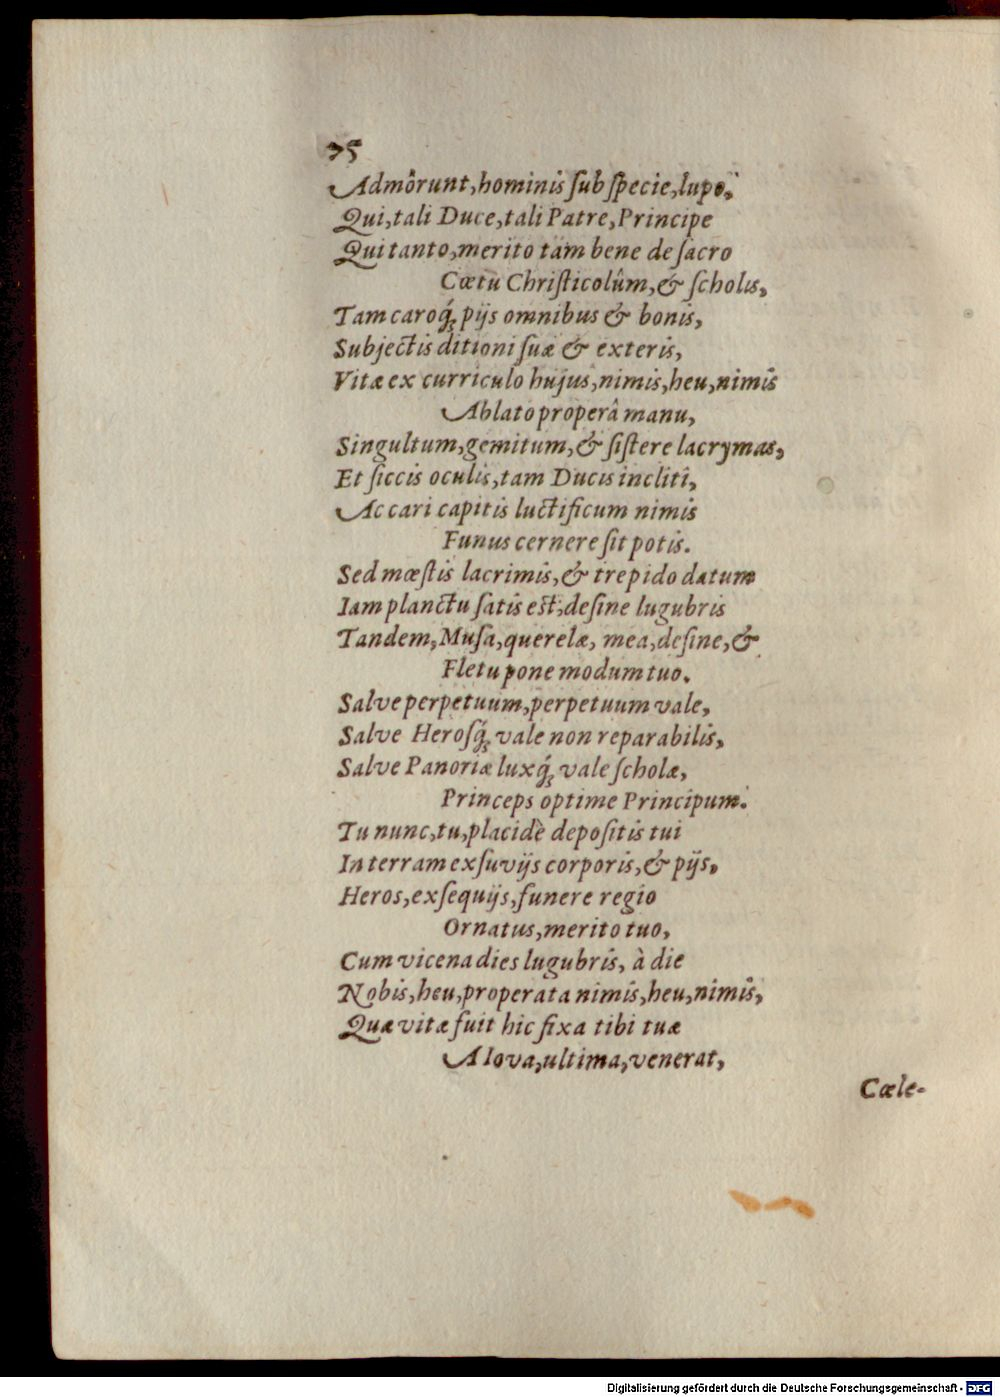 75
Admôrunt, hominis ſub ſpecie, lupo.
Qui, tali Duce, tali Patre, Principe
Qui tanto, merito tam bene de ſacro
Cœtu Chriſticolûm, & ſcholis,
Tam caroq́; pijs omnibus & bonis,
Subjectis ditioni ſuæ & exteris,
Vitæ ex curriculo hujus, nimis, heu, nimis
Ablato properâ manu,
Singultum, gemitum, & ſiſtere lacrymas,
Et ſiccis oculis, tam Ducis incliti,
Ac cari capitis luctificum nimis
Funus cernere ſit potis.
Sed mœſtis lacrimis, & trepido datum
Iam planctu ſatis eſt; deſine lugubris
Tandem, Muſa, querelæ, mea, deſine, &
Fletu pone modum tuo.
Salve perpetuum, perpetuum vale,
Salve Heroſq́; vale non reparabilis,
Salve Panoriæ luxq́; vale ſcholæ,
Princeps optime Principum.
Tu nunc, tu, placidè depoſitis tui
In terram exſuvijs corporis, & pijs,
Heros, exſequijs, funere regio
Ornatus, merito tuo,
Cum vicena dies lugubris, à die
Nobis, heu, properata nimis, heu, nimis,
Quæ vitæ fuit hic fixa tibi tuæ
A Iova, ultima, venerat,
Cœle-
Digitalisierung gefördert durch die Deutsche Forschungsgemeinschaft - DFG